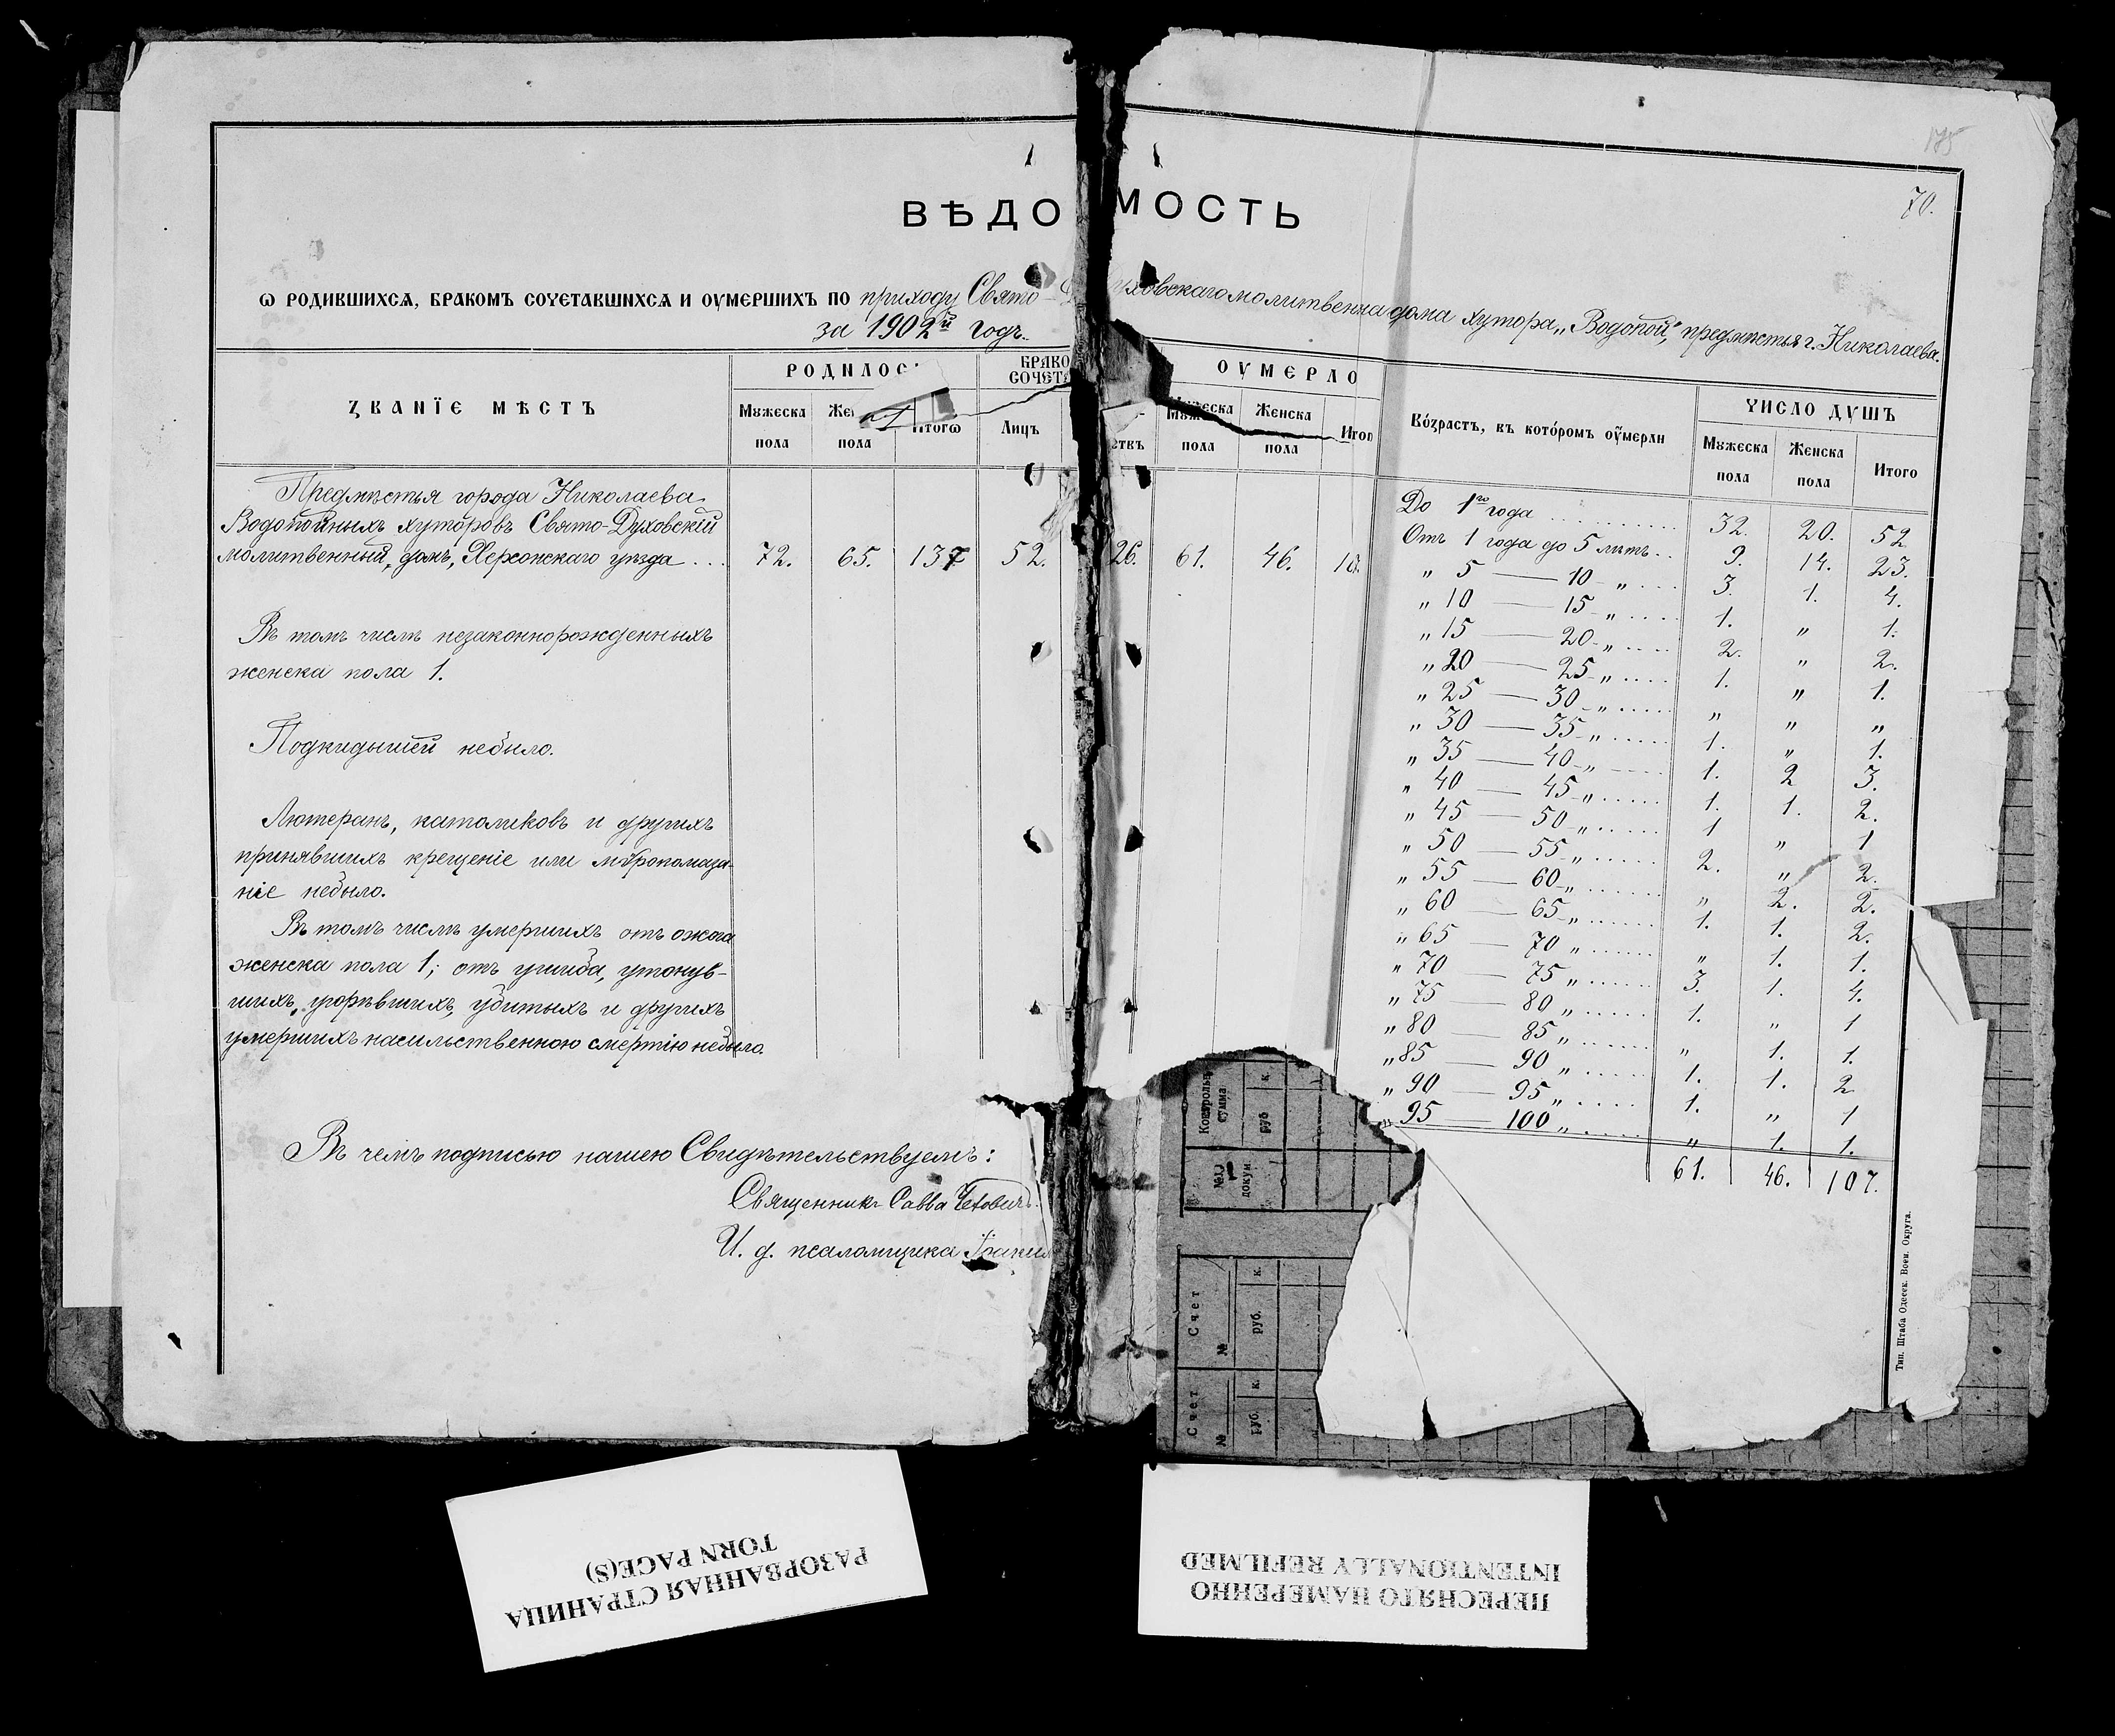 175
70.
ВѢДОМОСТЬ
Ѡ РОДИВШИХСѦ, БРАКОМЪ СОЧЕТАВШИХСѦ И ОУМЕРШИХЪ ПО приходу Свято-Духовскаго молитвенна дома хутора „Водопой", предмѣстья г. Николаева.
за 1902й годъ.
ЗВАНЇЕ МѢСТЪ
РОДИЛОС
БРАКО
СОЧЕТА
ОУМЕРЛО
Возрастъ, въ которомъ оумерли
ЧИСЛО ДУШЪ
Мужеска пола
Же пола
Итогѡ
Лицъ
ствъ
Мужеска пола
Женска пола
Итог
Мужеска пола
Женска пола
Итого
Предмѣстья города Николаева
Водопойныхъ хуторовъ Свято-Духовскій
молитвенный домъ, Херсонскаго уѣзда . . . 72. 65. 137 52. 26. 61. 46. 10
Въ томъ числѣ незаконнорожденныхъ
женска пола 1.
Подкидышей небыло.
Лютеранъ, католиковъ и другихъ
принявшихъ крещеніе или мѵропомаза-
ніе небыло.
Въ томъ числѣ умершихъ отъ ожога
женска пола 1; отъ ушиба, утонув-
шихъ, угорѣвшихъ, убитыхъ и другихъ
умершихъ насильственною смертію небыло.
Въ чемъ подписью нашею Свидѣтельствуемъ:
Священникъ Савва
И. д. псаломщика
До 1го года . . . 32. 20. 52
Отъ 1 года до 5 лѣтъ . . 9. 14. 23.
„ 5 — 10 „ . . . 3. 1. 4.
„ 10 — 15 „ . . . 1. „ 1.
„ 15 — 20 „ . . . 2. „ 2.
„ 20 — 25 „ . . . 1. „ 1.
„ 25 — 30 „ . . . „ „ „
„ 30 — 35 „ . . . 1. „ 1.
„ 35 — 40 „ . . . 1. 2 3.
„ 40 — 45 „ . . . 1. 1. 2.
„ 45 — 50 „ . . . 1 „ 1
„ 50 — 55 „ . . . 2. „ 2.
„ 55 — 60 „ . . . „ 2. 2.
„ 60 — 65 „ . . . 1. 1. 2.
„ 65 — 70 „ . . . „ 1. 1.
„ 70 — 75 „ . . . 3. 1. 4.
„ 75 — 80 „ . . . 1. „ 1
„ 80 — 85 „ . . . „ 1. 1.
„ 85 — 90 „ . . . 1. 1. 2
„ 90 — 95 „ . . . 1. „ 1
„ 95 — 100 „ . . . „ 1. 1.
61. 46. 107.
Контрольн сумма
руб к.
№№ докум
Счет
№
руб. к.
Счет
№
руб. к.
Тип. Штаба Одесск. Воен. Округа.
РАЗОРВАННАЯ СТРАНИЦА
TORN PAGE(S)
ПЕРЕСНЯТО НАМЕРЕННО
INTENTIONALLY REFILMED